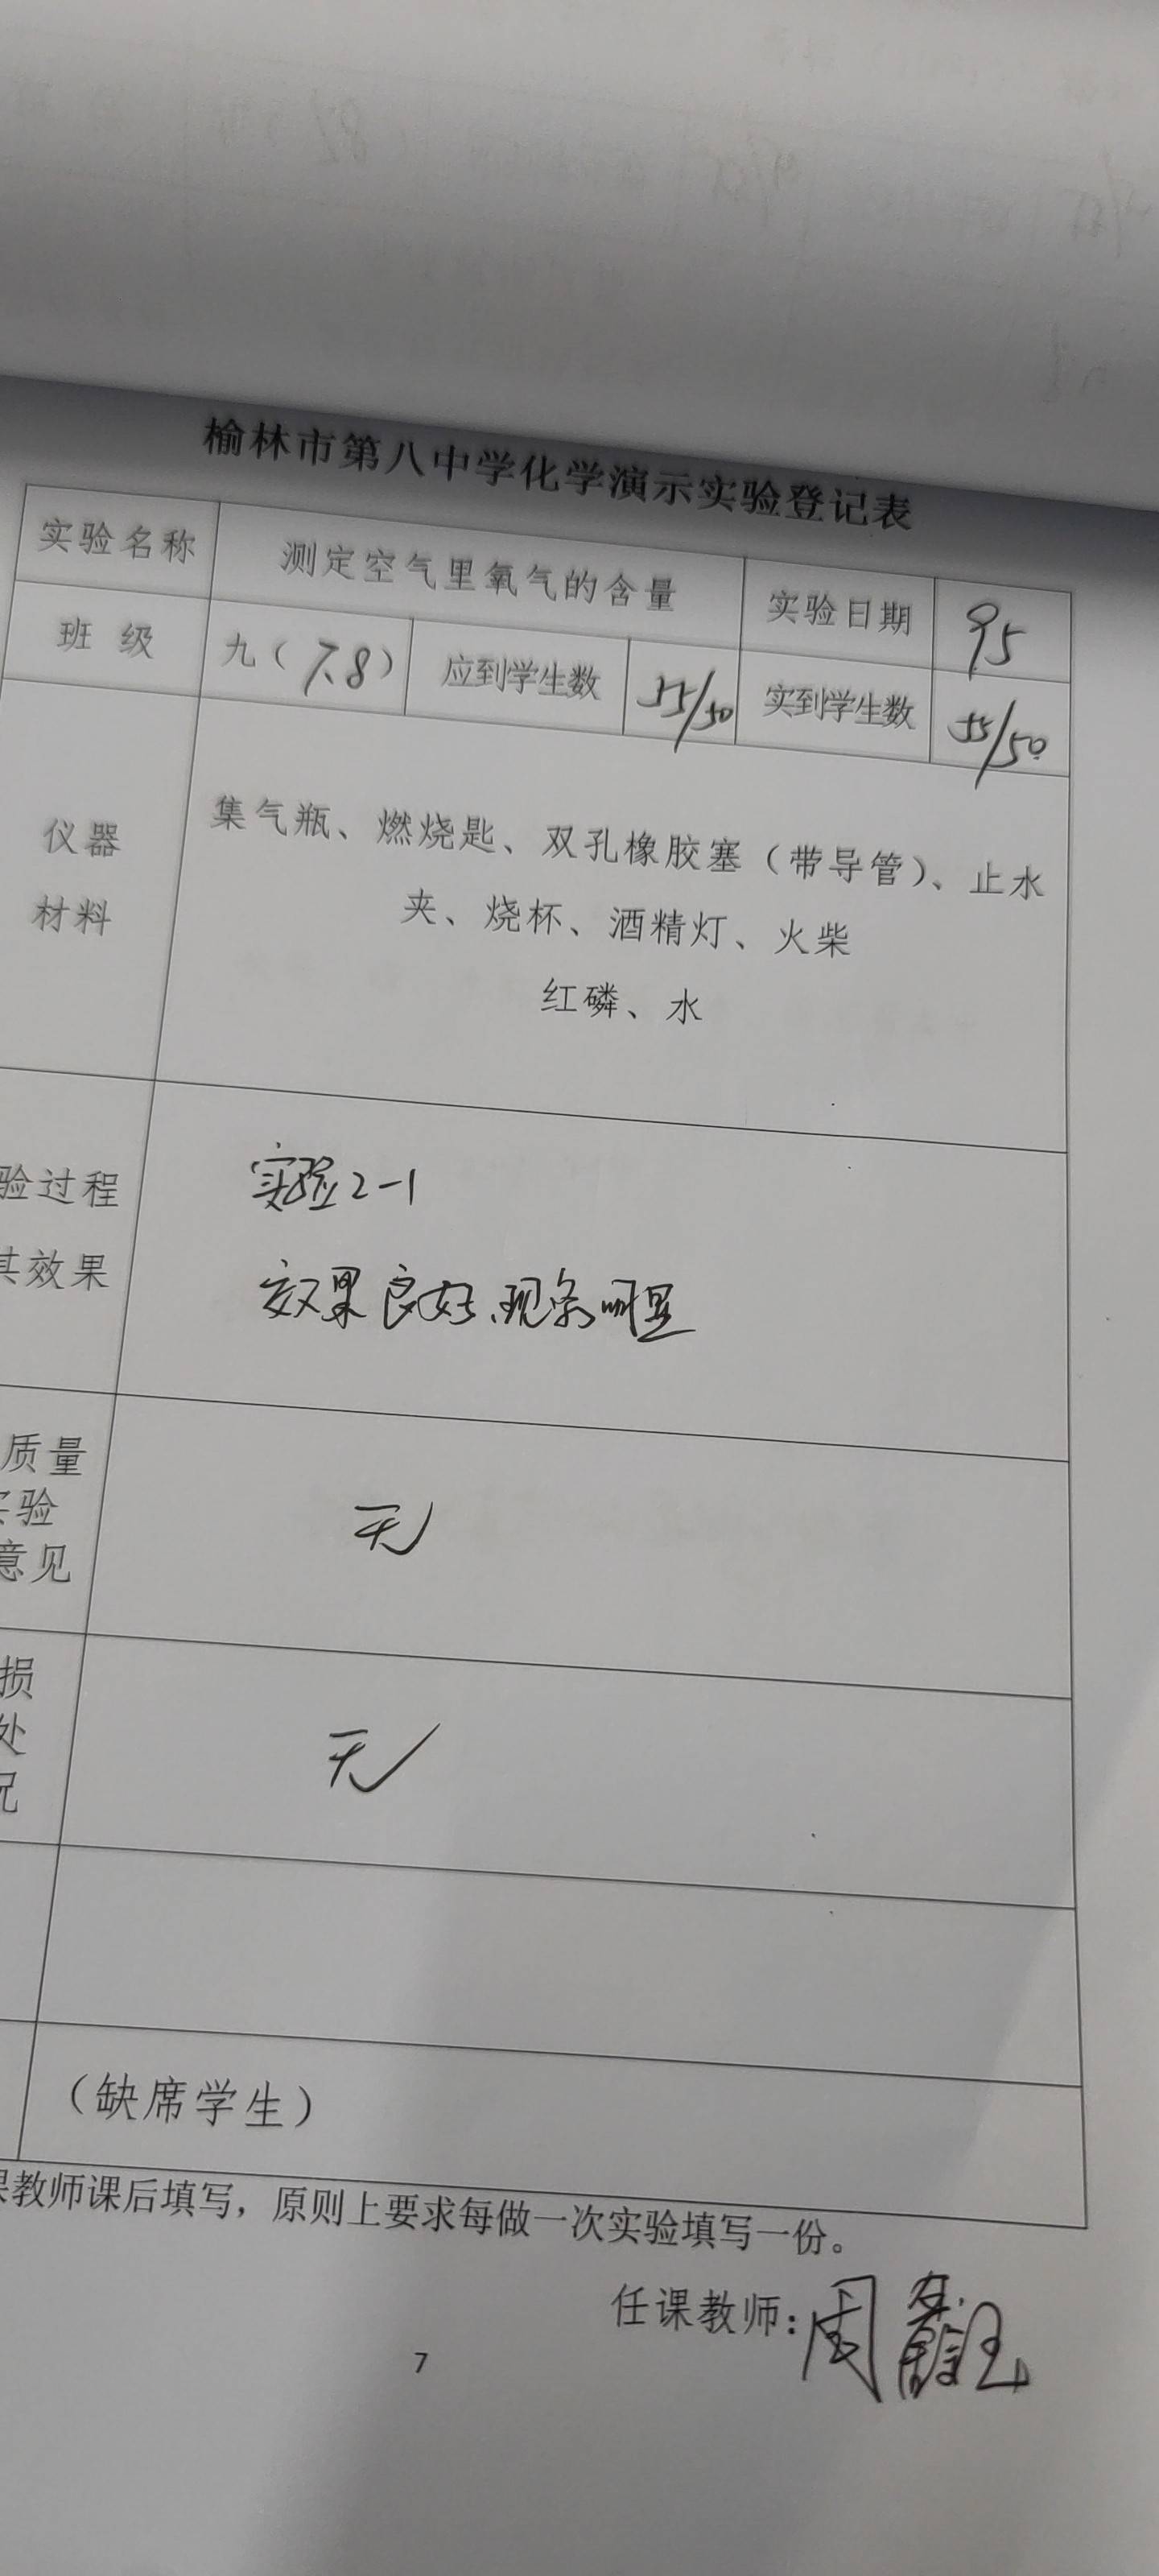 榆林市第八中学化学演示实验登记表
实验名称 测定空气里氧气的含量 实验日期 9.5
班 级 九（7.8） 应到学生数 55/50 实到学生数 55/50
仪器
材料
集气瓶、燃烧匙、双孔橡胶塞（带导管）、止水
夹、烧杯、酒精灯、火柴
红磷、水
验过程
其效果
实验2-1
效果良好、现象明显
质量
实验
意见
无
损
处
况
无
（缺席学生）
课教师课后填写，原则上要求每做一次实验填写一份。
任课教师：周
7